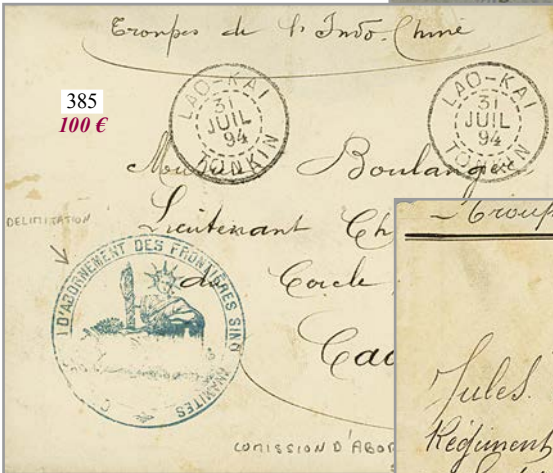 Troupes de l'Indo-Chine
385
100 €
LAO-KAI
31
JUIL
94
TONKIN
LAO-KAI
31
JUIL
94
TONKIN
Boulanger
Lieutenant Ch
du Cercle
Cao
DELIMITATION
D'ABORNEMENT DES FRONTIÈRES SINO ANNAMITES
COMISSION D'ABOR
Troup
Jules.
Régiment